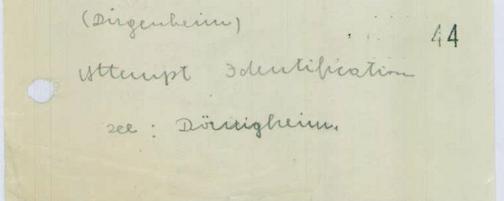 (Dirgenheim)
44
Attempt Identification
see : Dörnigheim.